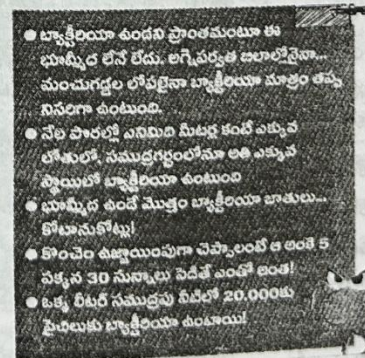 ● బ్యాక్టీరియా ఉండని ప్రాంతమంటూ ఈ
భూమ్మీద లేనే లేదు. అగ్నిపర్వత బిలాల్లోనైనా...
మంచుగడ్డల లోపలైనా బ్యాక్టీరియా మాత్రం తప్ప
నిసరిగా ఉంటుంది.
● నేల పొరల్లో ఎనిమిది మీటర్ల కంటే ఎక్కువ
లోతులో, సముద్రగర్భంలోనూ అతి ఎక్కువ
స్థాయిలో బ్యాక్టీరియా ఉంటుంది
● భూమ్మీద ఉండే మొత్తం బ్యాక్టీరియా జాతులు...
కోటానుకోట్లు!
● కొంచెం ఉజ్జాయింపుగా చెప్పాలంటే ఆ అంకె 5
పక్కన 30 సున్నాలు పెడితే ఎంతో అంత!
● ఒక్క లీటర్ సముద్రపు నీటిలో 20.000కు
పైచిలుకు బ్యాక్టీరియా ఉంటాయి!